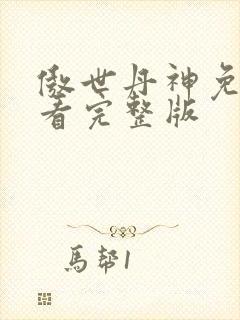 傲世丹神免
看完整版
馬幇1